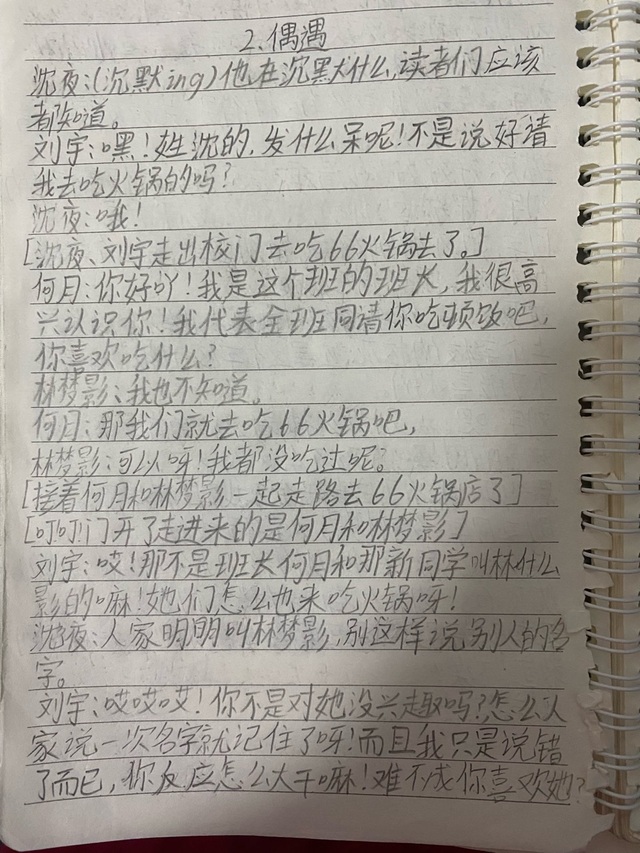 2.偶遇
沈夜:(沉默ing)他在沉默什么,读者们应该
都知道。
刘宇:嘿!姓沈的,发什么呆呢!不是说好请
我去吃火锅的吗?
沈夜:哦!
[沈夜、刘宇走出校门去吃66火锅去了。]
何月:你好吖!我是这个班的班长,我很高
兴认识你!我代表全班同请你吃顿饭吧,
你喜欢吃什么?
林梦影:我也不知道。
何月:那我们就去吃66火锅吧,
林梦影:可以呀!我都没吃过呢。
[接着何月和林梦影一起走路去66火锅店了]
[叮叮门开了走进来的是何月和林梦影]
刘宇:哎!那不是班长何月和那新同学叫林什么
影的嘛!她们怎么也来吃火锅呀!
沈夜:人家明明叫林梦影,别这样说别人的名
字。
刘宇:哎哎哎!你不是对她没兴趣吗?怎么人
家说一次名字就记住了呀!而且我只是说错
了而已,你反应怎么大干嘛!难不成你喜欢她?